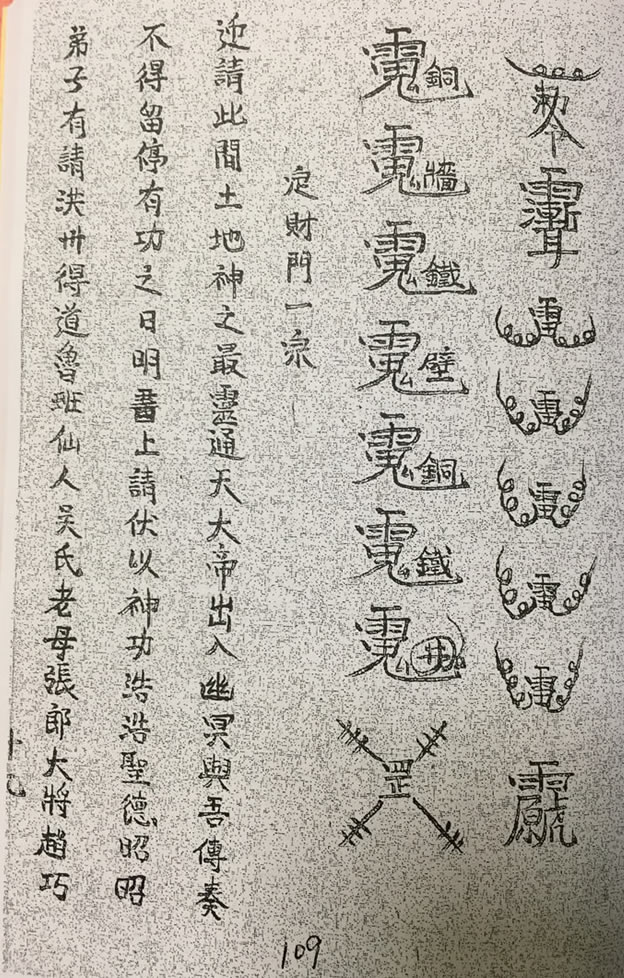 敕令 雷 雷 雷 雷 雷
銅 牆 鐵 壁 銅 鐵 井 罡
定財門一宗
迎請此間土地神之最靈通天大帝出入幽冥與吾傳奏
不得留停有功之日明書上請伏以神功浩浩聖德昭昭
弟子有請洪州得道魯班仙人吳氏老母張郎大將趙巧
109